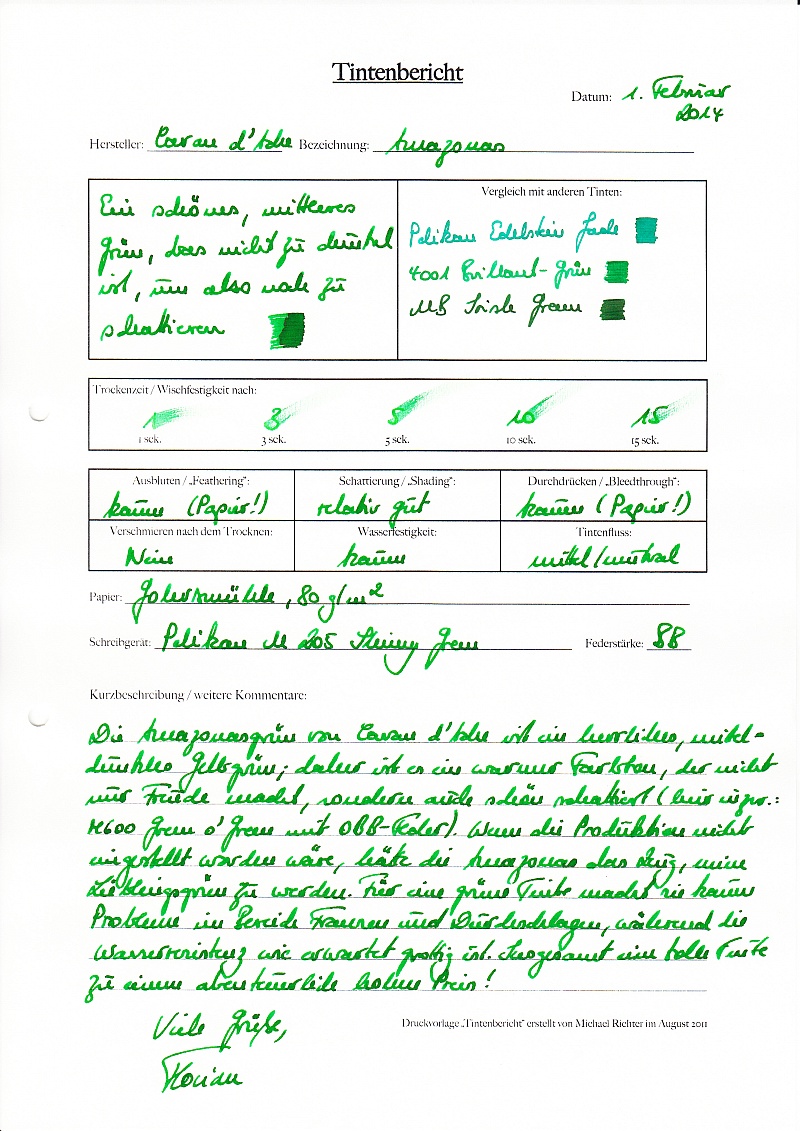 Tintenbericht
Datum: 1. Februar
2014
Hersteller: Caran d'Ache Bezeichnung: Amazonas
Ein schönes, mittleres
grün, das nicht zu dunkel
ist, um also noch zu
schattieren
Vergleich mit anderen Tinten:
Pelikan Edelstein Jade
4001 Brillant-grün
MB Irish Green
Trockenzeit / Wischfestigkeit nach:
1 3 5 10 15
1 sek. 3 sek. 5 sek. 10 sek. 15 sek.
Ausbluten / „Feathering": Schattierung / „Shading": Durchdrücken / „Bleedthrough":
kaum (Papier!) relativ gut kaum (Papier!)
Verschmieren nach dem Trocknen: Wasserfestigkeit: Tintenfluss:
Nein kaum mittel/neutral
Papier: Gohrsmühle, 80 g/m²
Schreibgerät: Pelikan M 205 Green Federstärke: BB
Kurzbeschreibung / weitere Kommentare:
Die Amazonasgrün von Caran d'Ache ist ein herrliches, mittel-
dunkles Gelbgrün; daher ist es ein warmer Farbton, der nicht
nur Freude macht, sondern auch schön schattiert (hier
M600 Green o' Green mit OBB-Feder). Wenn die Produktion nicht
eingestellt worden wäre, hätte die Amazonas das Zeug, meine
Lieblingsgrün zu werden. Für eine grüne Tinte macht sie kaum
Probleme im Bereich Fransen und Durchschlagen, während die
Wasserresistenz wie erwartet ist. Insgesamt eine tolle Tinte
zu einem abenteuerlich hohen Preis!
Viele Grüße,
Florian
Druckvorlage „Tintenbericht" erstellt von Michael Richter im August 2011